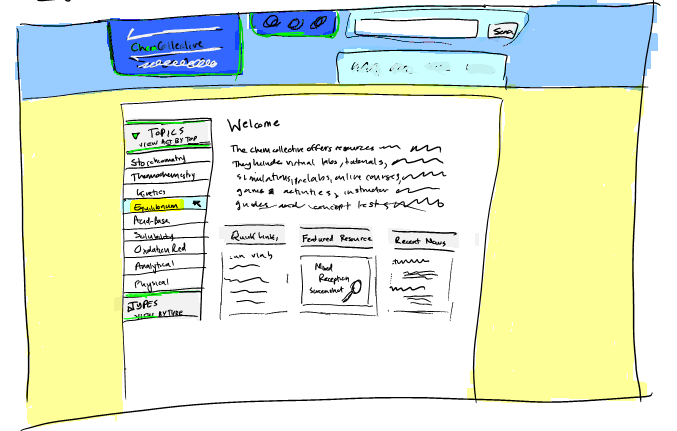 ChemCollective
Send
TOPICS
VIEW ALL BY TOP
Stoichiometry
Thermochemistry
Kinetics
Equilibrium
Acid-Base
Solubility
Oxidation Red
Analytical
Physical
TYPES
VIEW BY TYPE
Welcome
The chemcollective offers resources
They include virtual labs, tutorials,
simulations, prelabs, online courses,
games & activities, instructor
guides and concept tests
Quick Links
Featured Resource
Recent News
vlab
Mixed
Reception
Screenshot